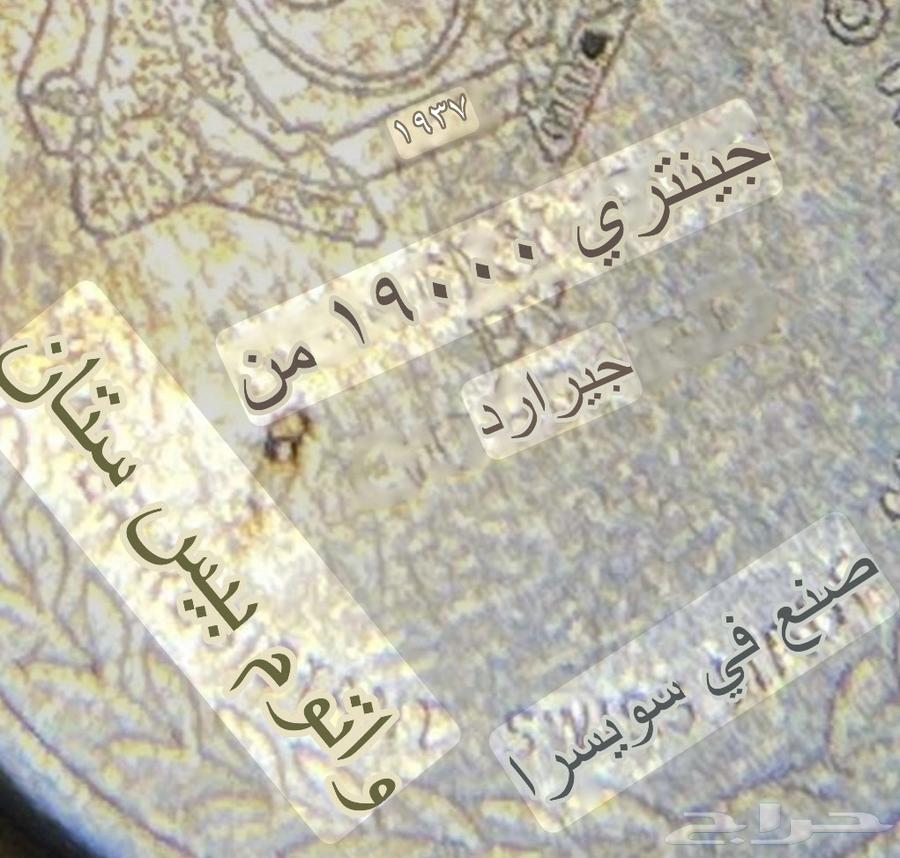 ١٩٣٧
جينتري ١٩٠٠٠ من
جيرارد
واتوم بيس ستان
صنع في سويسرا
حراج